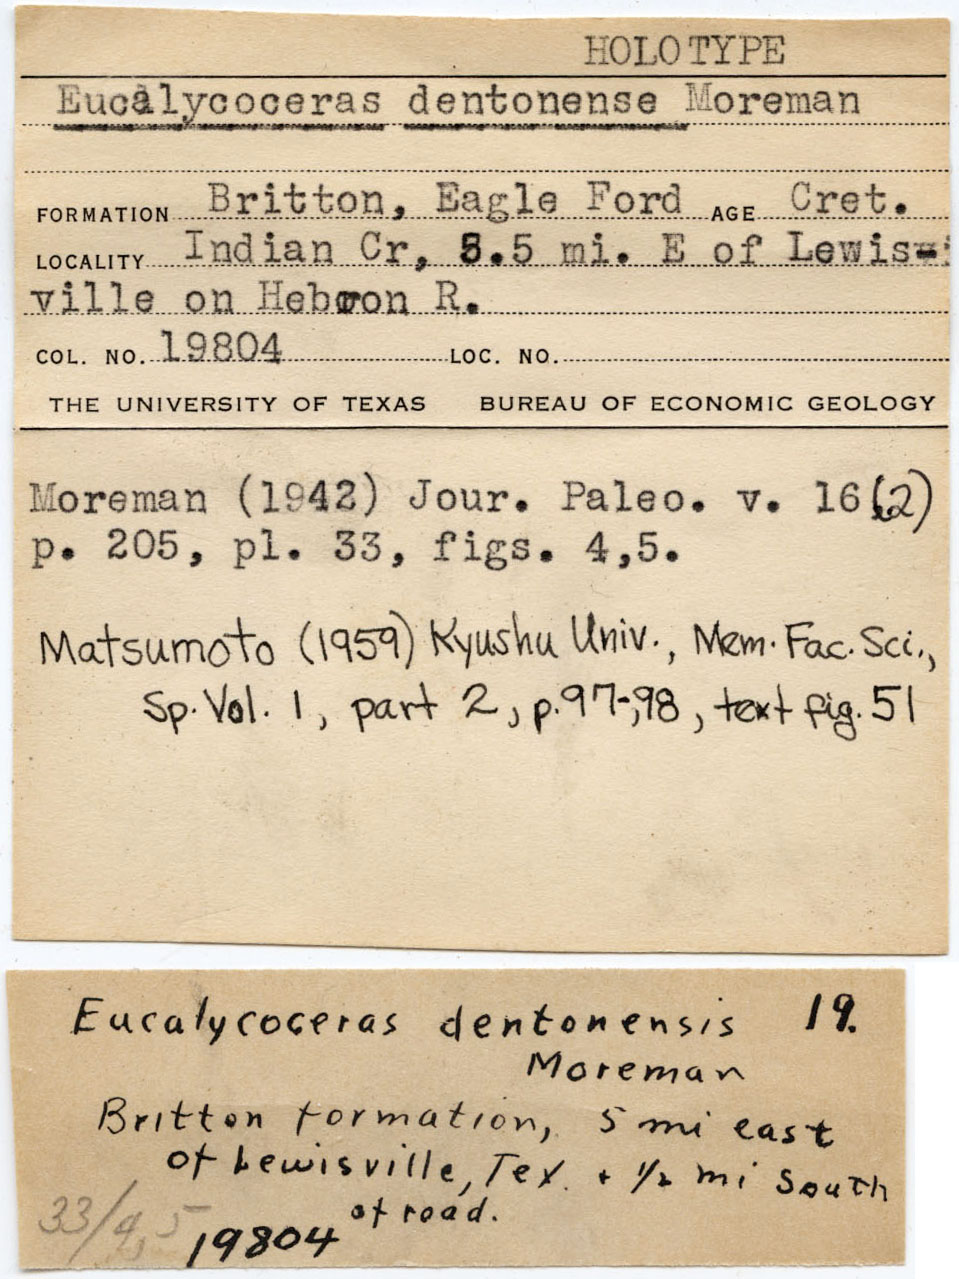 HOLOTYPE
Eucalycoceras dentonense Moreman
FORMATION Britton, Eagle Ford AGE Cret.
LOCALITY Indian Cr, 5.5 mi. E of Lewis-
ville on Hebron R.
COL. NO. 19804 LOC. NO.
THE UNIVERSITY OF TEXAS BUREAU OF ECONOMIC GEOLOGY
Moreman (1942) Jour. Paleo. v. 16 (2)
p. 205, pl. 33, figs. 4,5.
Matsumoto (1959) Kyushu Univ., Mem. Fac. Sci.,
Sp. Vol. 1, part 2, p. 97-98, text fig. 51
Eucalycoceras dentonensis 19.
Moreman
Britton formation, 5 mi east
of Lewisville, Tex. + 1/2 mi South
of road.
33/4,5 19804